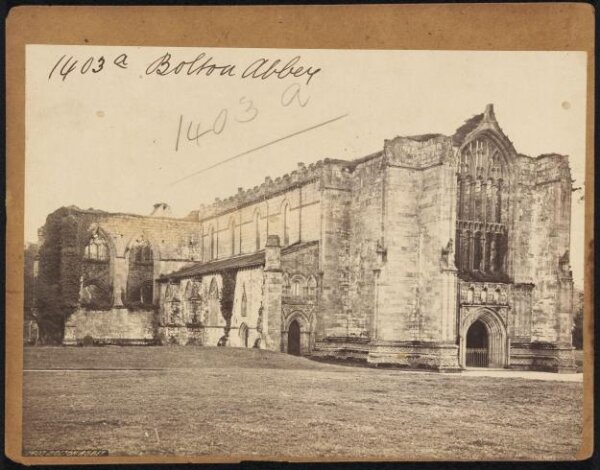 1403a Bolton Abbey
1403 a
1403 BOLTON ABBEY